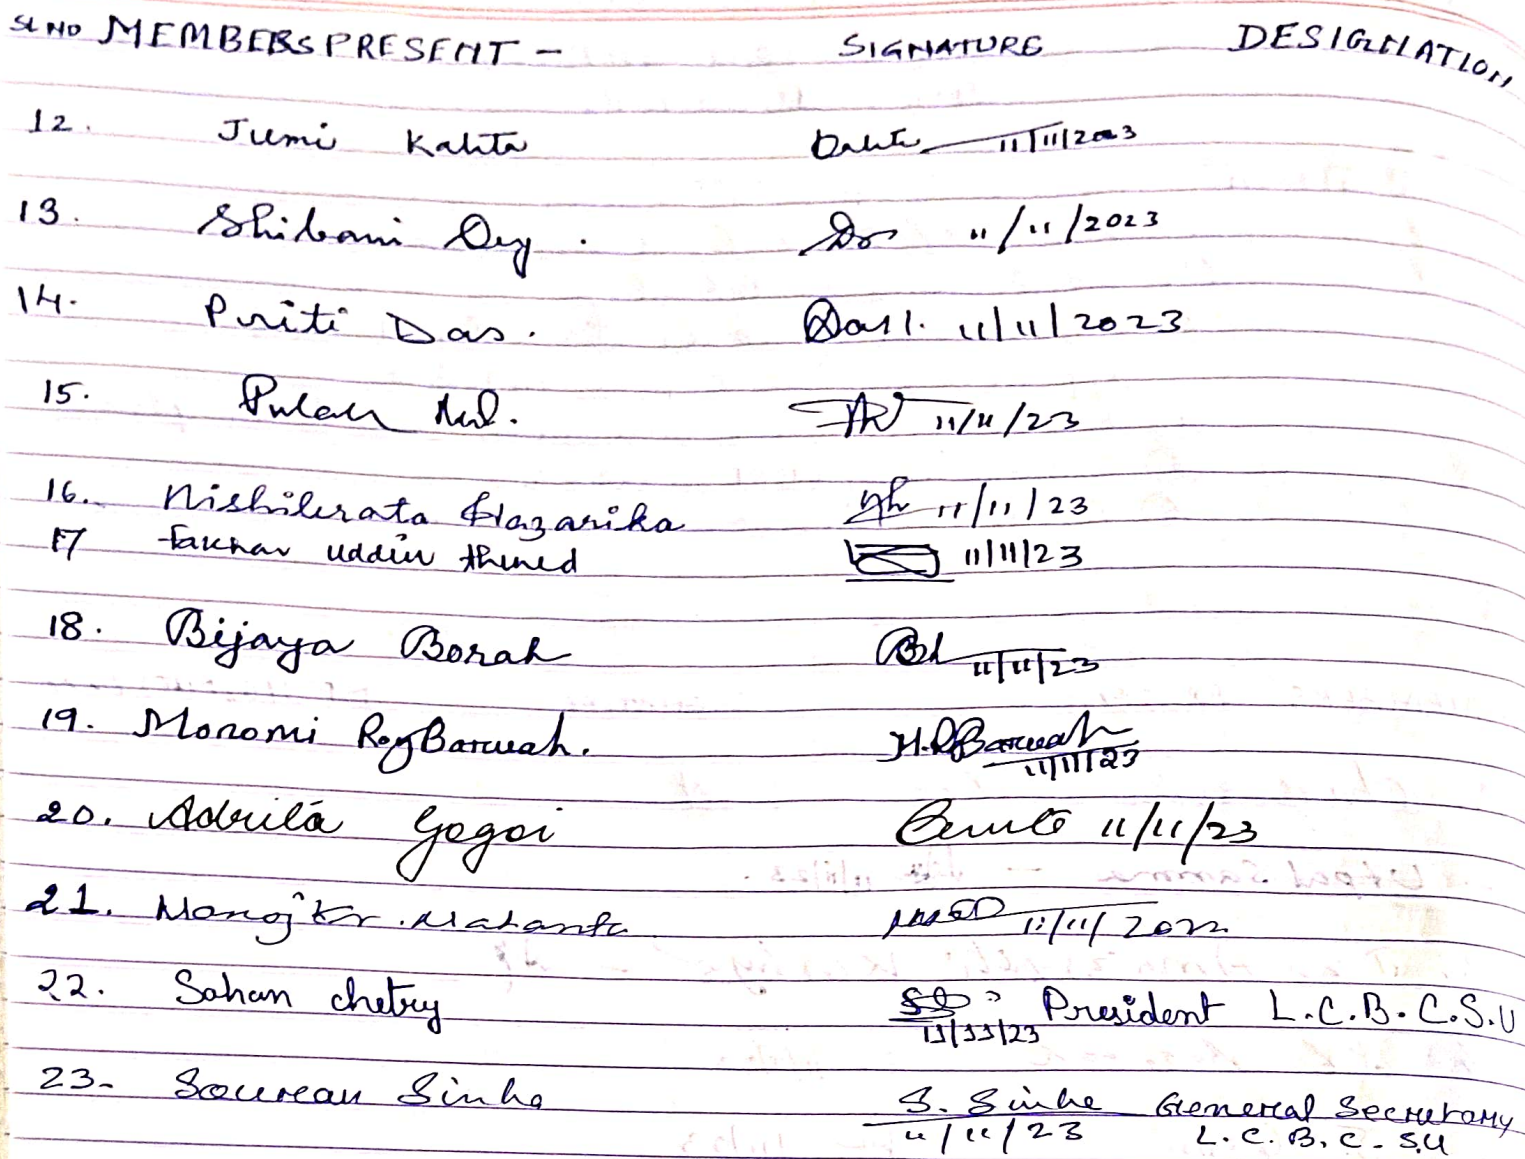 SL NO MEMBERS PRESENT - SIGNATURE DESIGNATION
12. Jumi Kalita 11/11/2023
13. Shibani Dey. 11/11/2023
14. Priti Das. 11/11/2023
15. Pulak 11/11/23
16. Hazarika 11/11/23
17 Uddin Ahmed 11/11/23
18. Bijaya Borah 11/11/23
19. Monomi RoyBaruah. M.R Baruah
11/11/23
20. Gogoi 11/11/23
21. Manoj Kr. Mahanta 11/11/
22. Sohan chetry President L.C.B.C.S.U
11/11/23
23- Sinha S. Sinha General Secretary
11/11/23 L.C.B.C.S.U